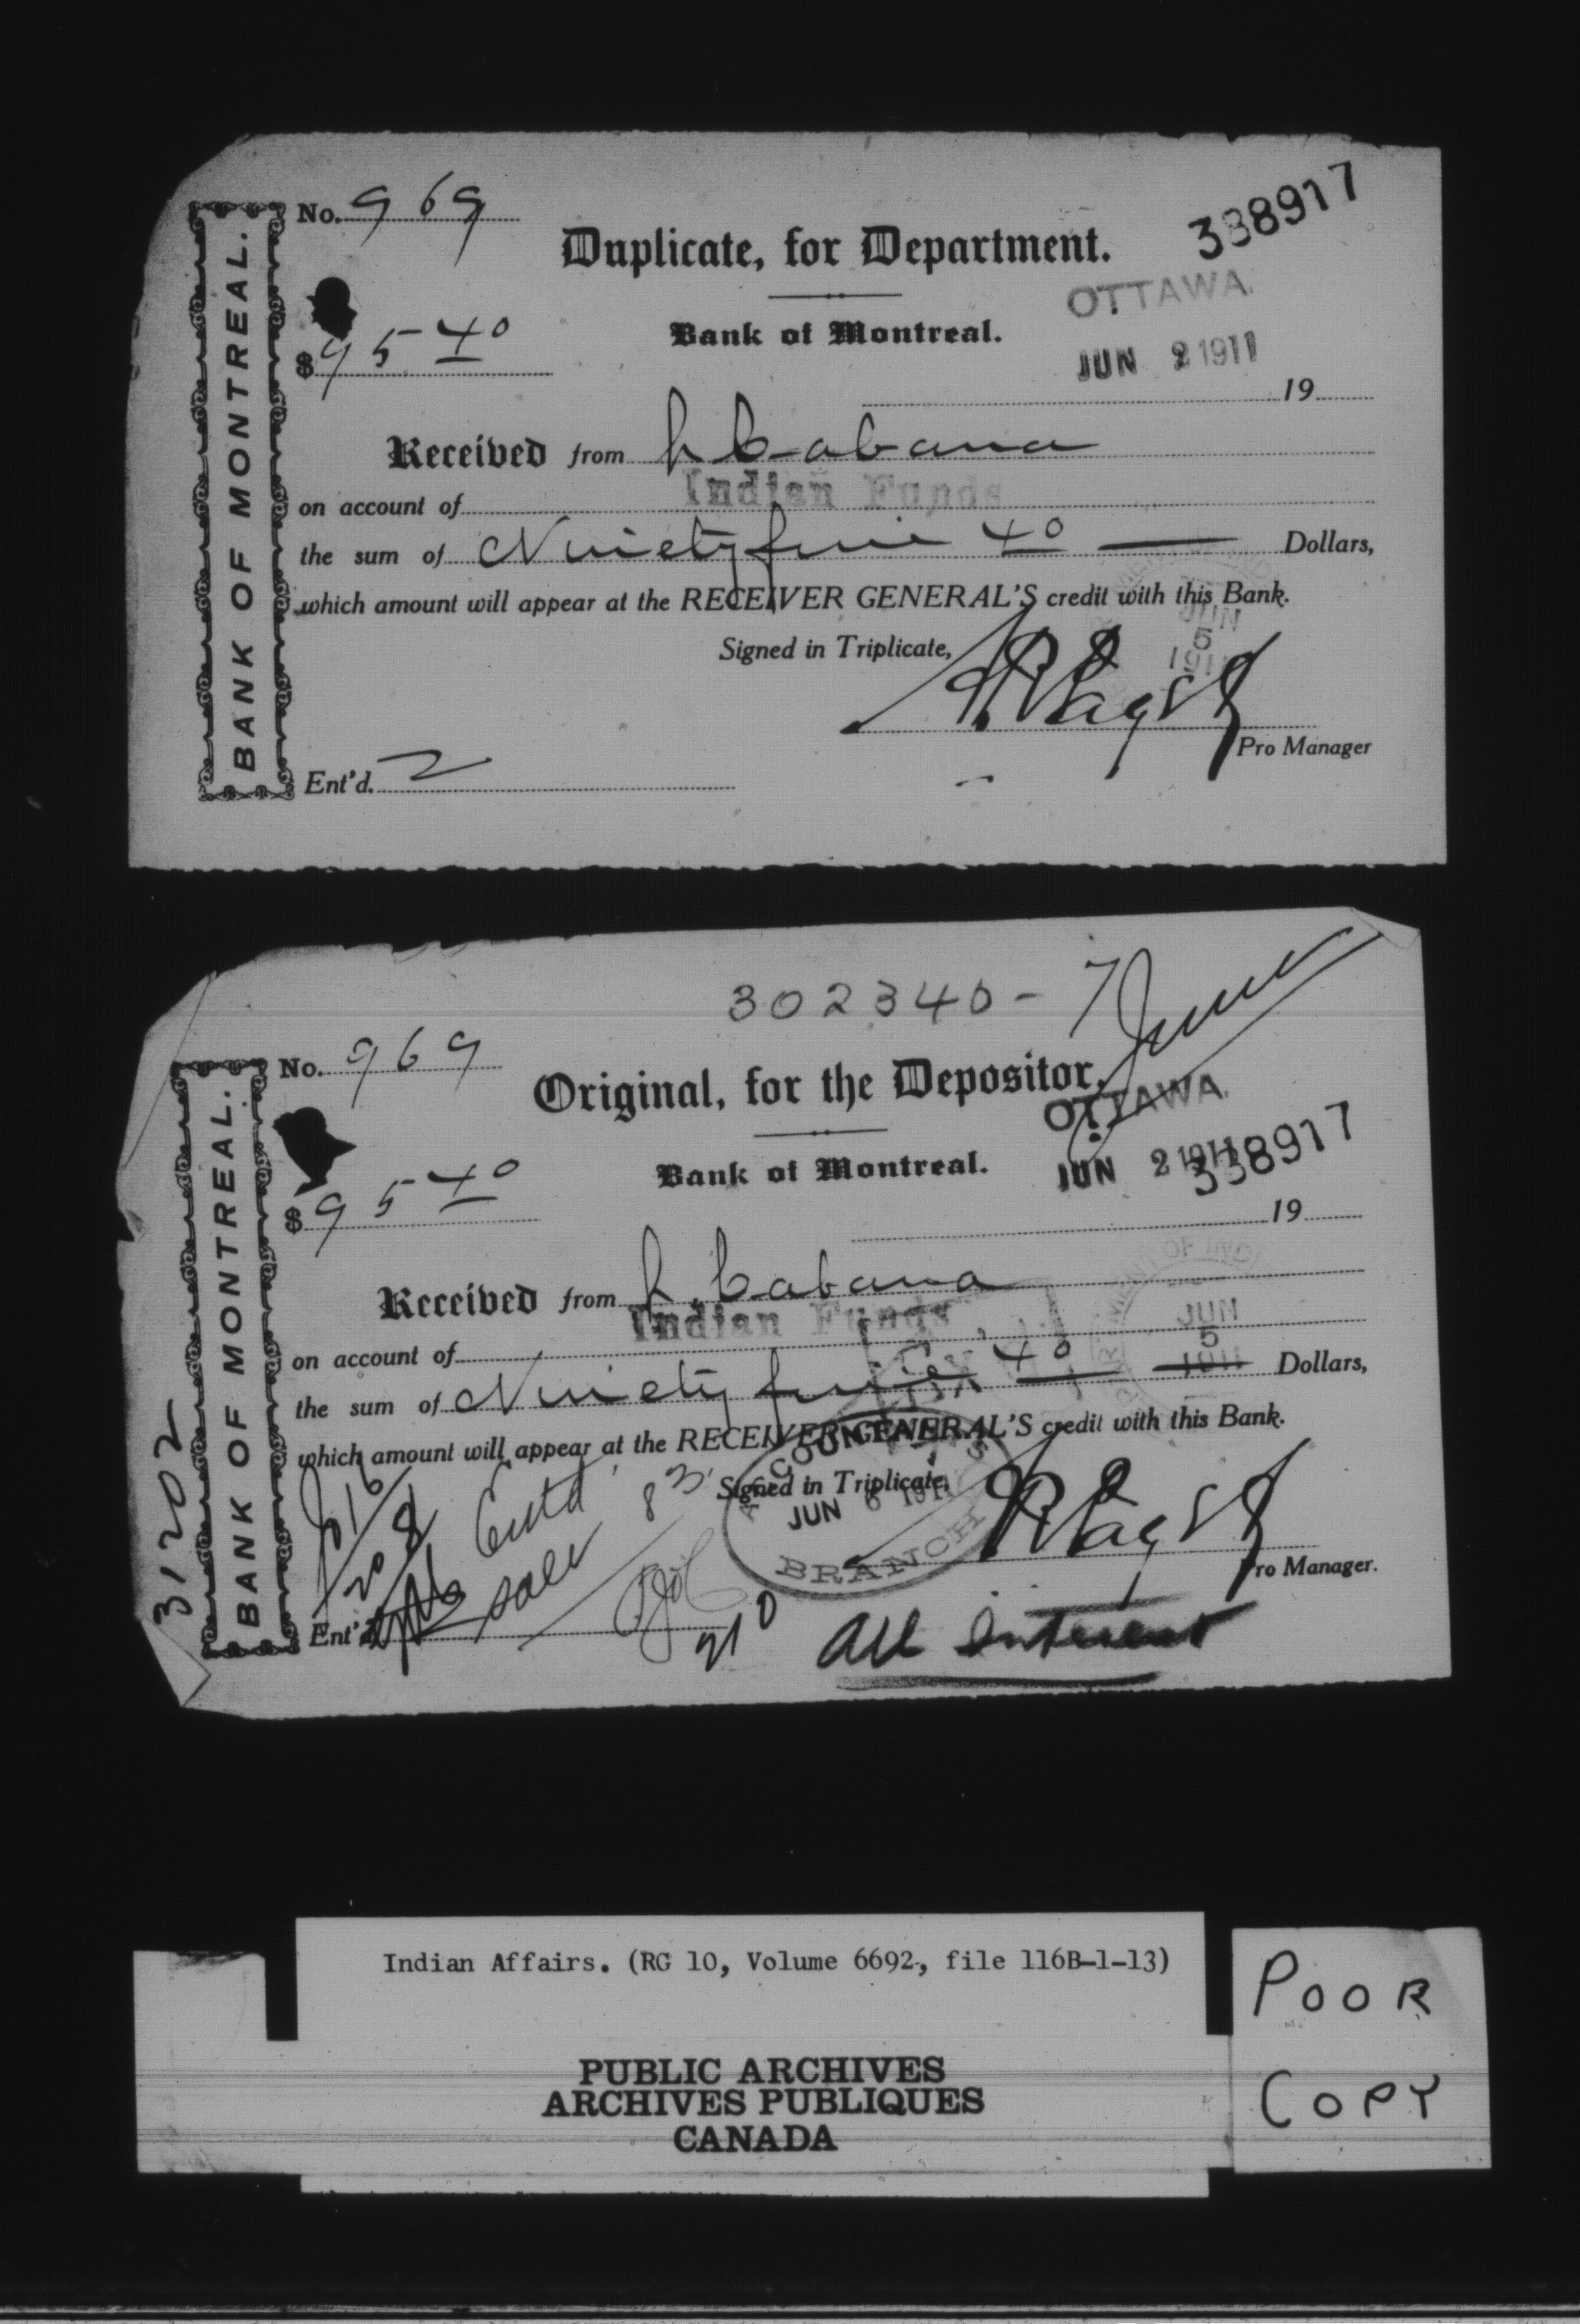 BANK OF MONTREAL.
No. 969
Duplicate, for Department.
338917
OTTAWA
$95 40
Bank of Montreal.
JUN 2 1911
19
Received from h Cabana
on account of Indian Funds
the sum of Ninety five 40 Dollars,
which amount will appear at the RECEIVER GENERAL'S credit with this Bank.
JUN
5
1911
Signed in Triplicate,
Pro Manager
Ent'd. 2
302340-7
June
BANK OF MONTREAL.
31202
No. 969
Original, for the Depositor.
OTTAWA
$95 40
Bank of Montreal.
JUN 2 1911
338917
19
Received from h. Cabana
on account of Indian Funds
the sum of Ninety five 40 Dollars,
DEPARTMENT OF INDI
JUN
5
1911
which amount will appear at the RECEIVER GENERAL'S credit with this Bank.
Signed in Triplicate,
ACCOUNTANT'S
JUN 6 1911
BRANCH
Pro Manager.
Entd
Ent'd
All Interest
Indian Affairs. (RG 10, Volume 6692, file 116B-1-13)
PUBLIC ARCHIVES
ARCHIVES PUBLIQUES
CANADA
POOR
COPY